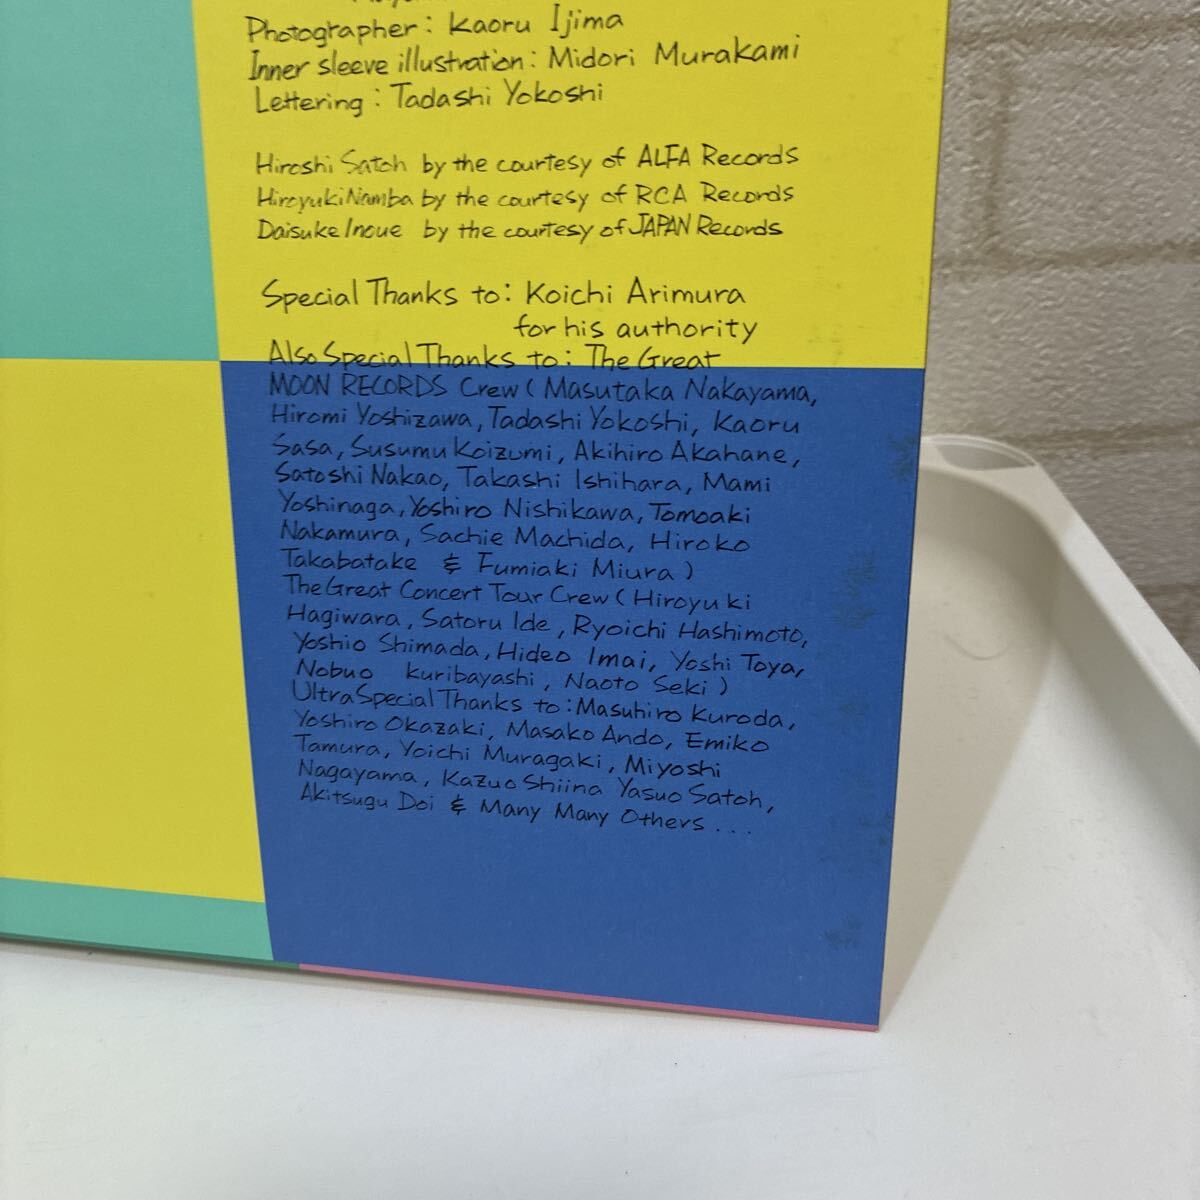 Photographer: Kaoru Ijima
Inner sleeve illustration: Midori Murakami
Lettering: Tadashi Yokoshi
Hiroshi Satoh by the courtesy of ALFA Records
Hiroyuki Namba by the courtesy of RCA Records
Daisuke Inoue by the courtesy of JAPAN Records
Special Thanks to: Koichi Arimura
for his authority
Also Special Thanks to: The Great
MOON RECORDS Crew (Masutaka Nakayama,
Hiromi Yoshizawa, Tadashi Yokoshi, Kaoru
Sasa, Susumu Koizumi, Akihiro Akahane,
Satoshi Nakao, Takashi Ishihara, Mami
Yoshinaga, Yoshiro Nishikawa, Tomoaki
Nakamura, Sachie Machida, Hiroko
Takabatake & Fumiaki Miura)
The Great Concert Tour Crew (Hiroyuki
Hagiwara, Satoru Ide, Ryoichi Hashimoto,
Yoshio Shimada, Hideo Imai, Yoshi Toya,
Nobuo Kuribayashi, Naoto Seki)
Ultra Special Thanks to: Masuhiro Kuroda,
Yoshiro Okazaki, Masako Ando, Emiko
Tamura, Yoichi Muragaki, Miyoshi
Nagayama, Kazuo Shiina Yasuo Satoh,
Akitsugu Doi & Many Many Others...